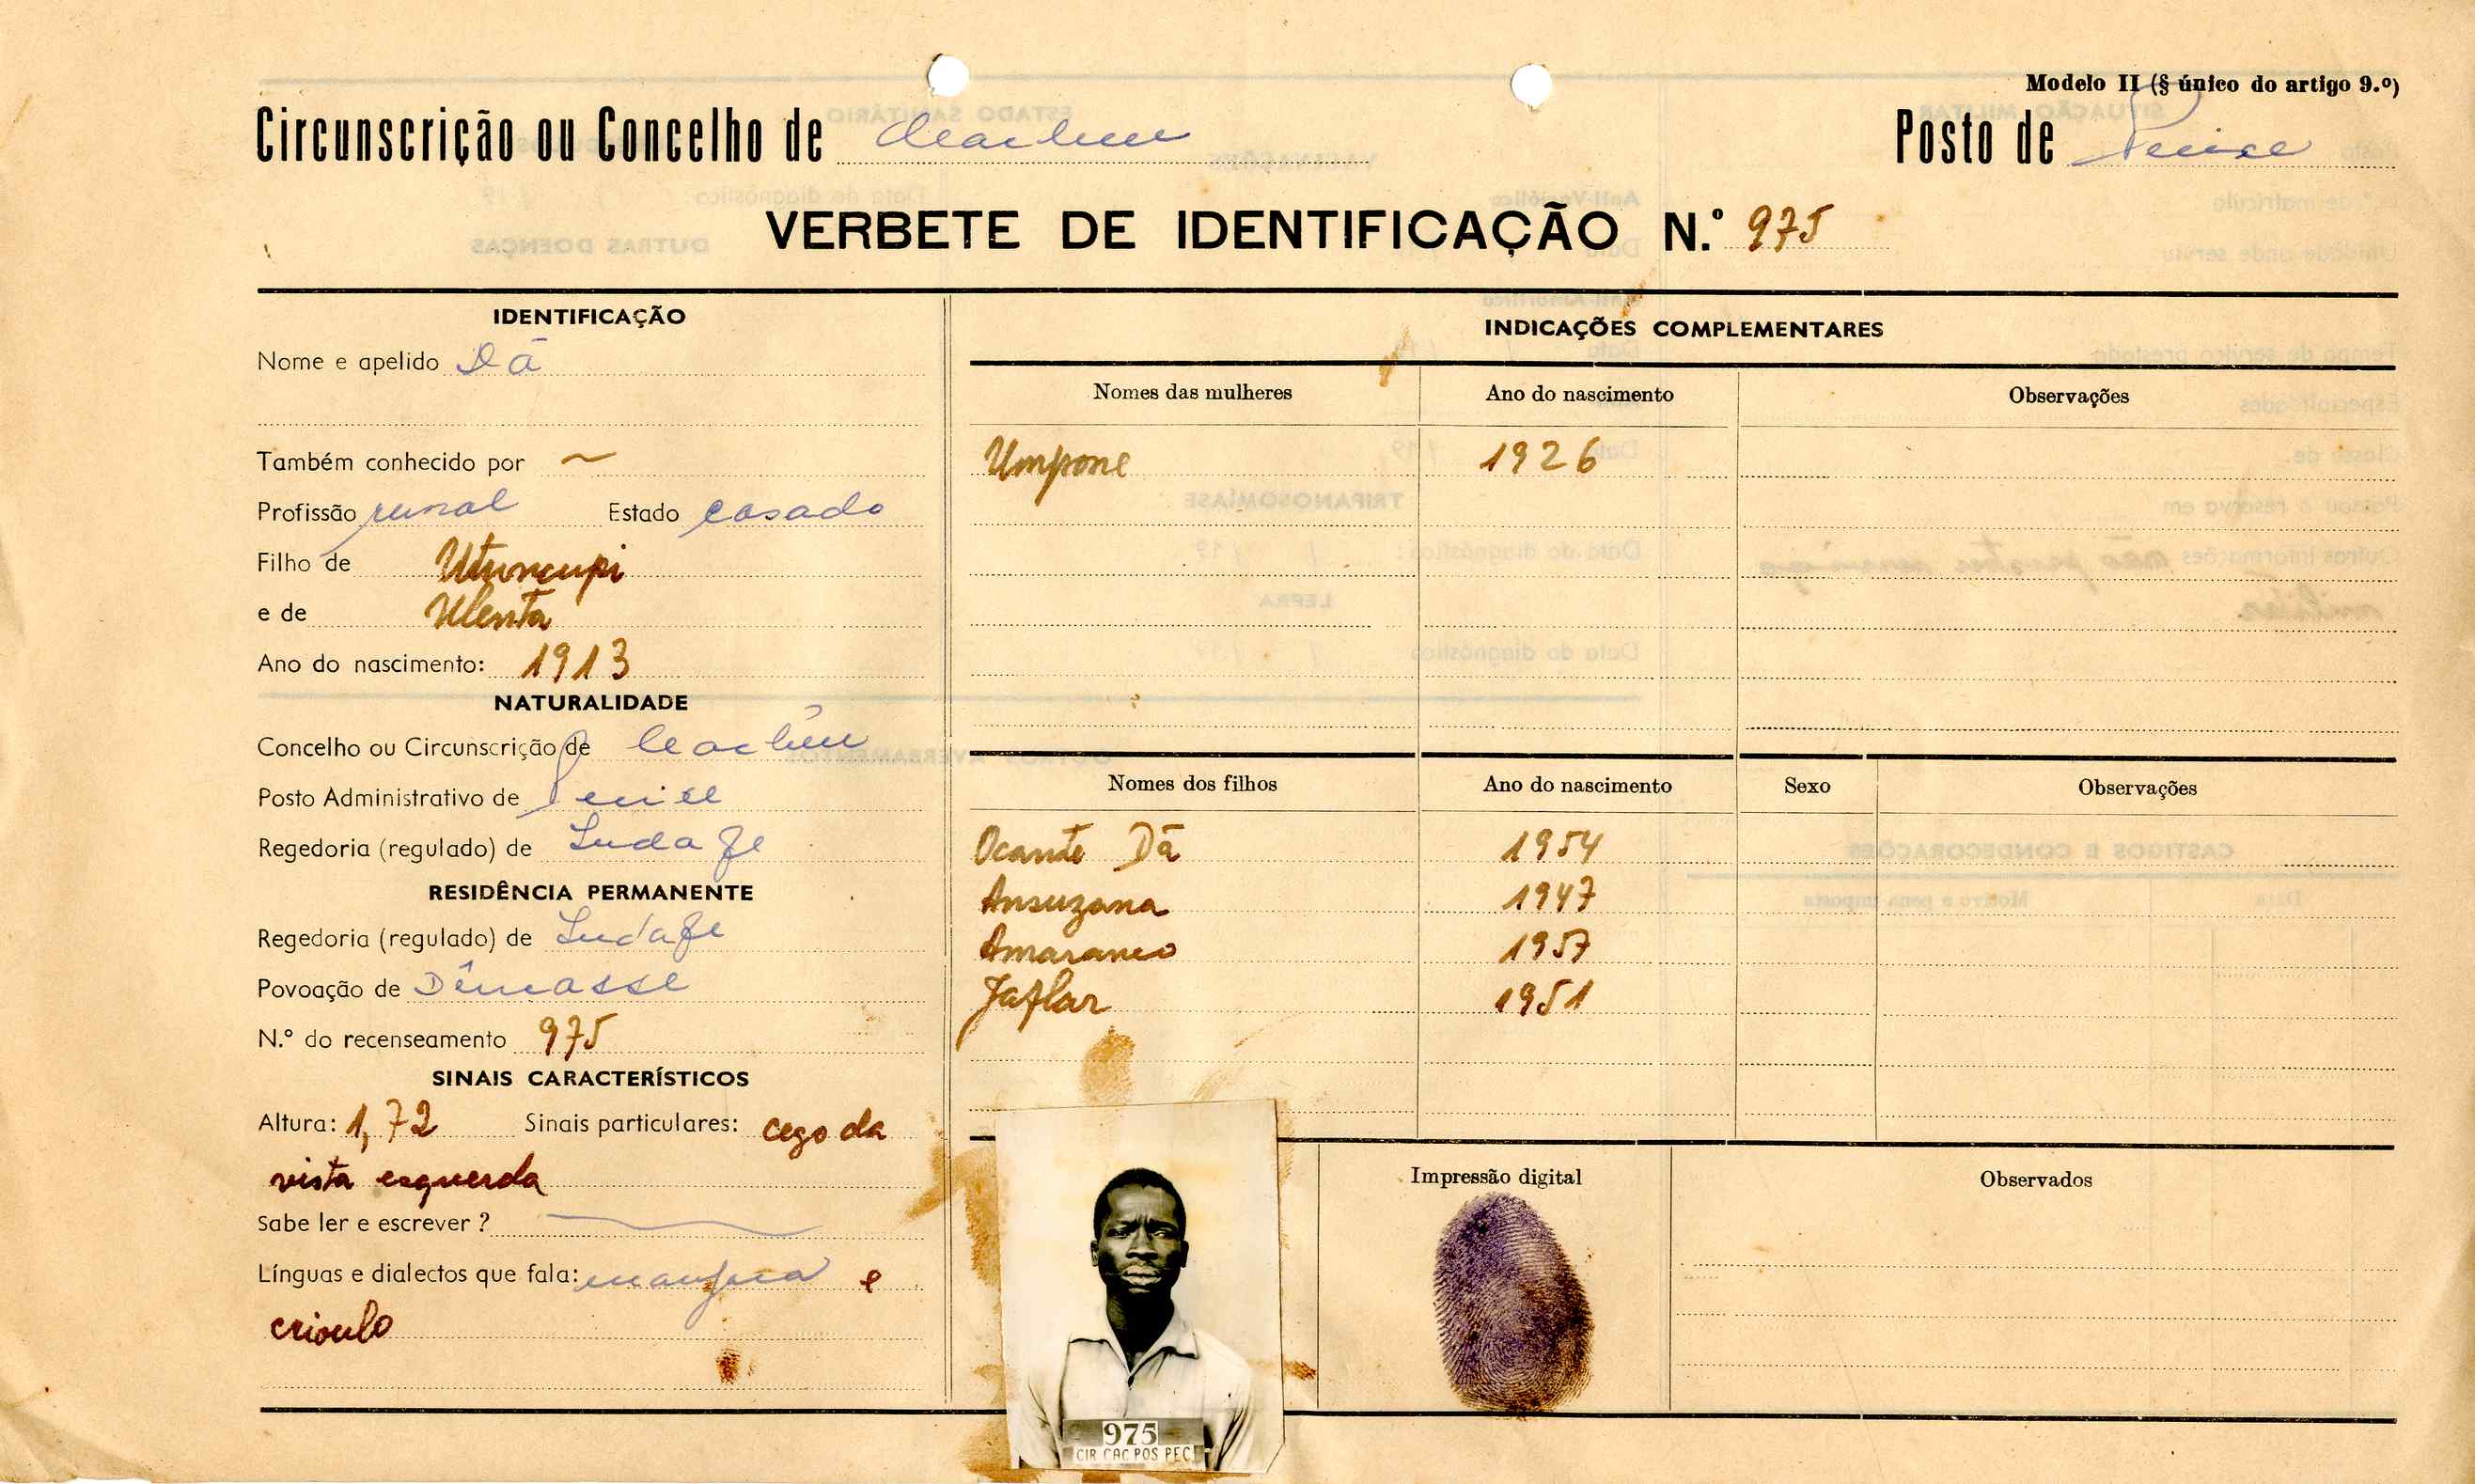 Modelo II (§ único do artigo 9.º)
Circunscrição ou Concelho de Cacheu
Posto de
VERBETE DE IDENTIFICAÇÃO N.º 975
IDENTIFICAÇÃO
Nome e apelido Dã
Também conhecido por ~
Profissão rural Estado casado
Filho de
e de Ulenta
Ano do nascimento: 1913
NATURALIDADE
Concelho ou Circunscrição de Cacheu
Posto Administrativo de
Regedoria (regulado) de
RESIDÊNCIA PERMANENTE
Regedoria (regulado) de
Povoação de
N.º do recenseamento 975
SINAIS CARACTERÍSTICOS
Altura: 1,72 Sinais particulares: cego da
vista esquerda
Sabe ler e escrever ?
Línguas e dialectos que fala: manjaca e
crioulo
INDICAÇÕES COMPLEMENTARES
Nomes das mulheres Ano do nascimento Observações
Umpone 1926
Nomes dos filhos Ano do nascimento Sexo Observações
Ocante Dã 1954
Ansuzana 1947
1957
Jaflar 1951
Impressão digital Observados
975
CIR CAC POS PEC